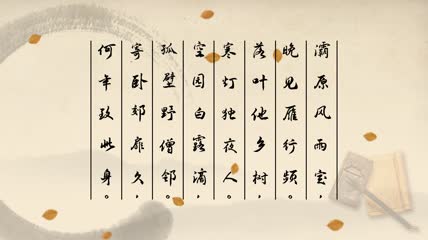 灞原风雨定，
晚见雁行频。
落叶他乡树，
寒灯独夜人。
空园白露滴，
孤壁野僧邻。
寄卧郊扉久，
何年致此身。